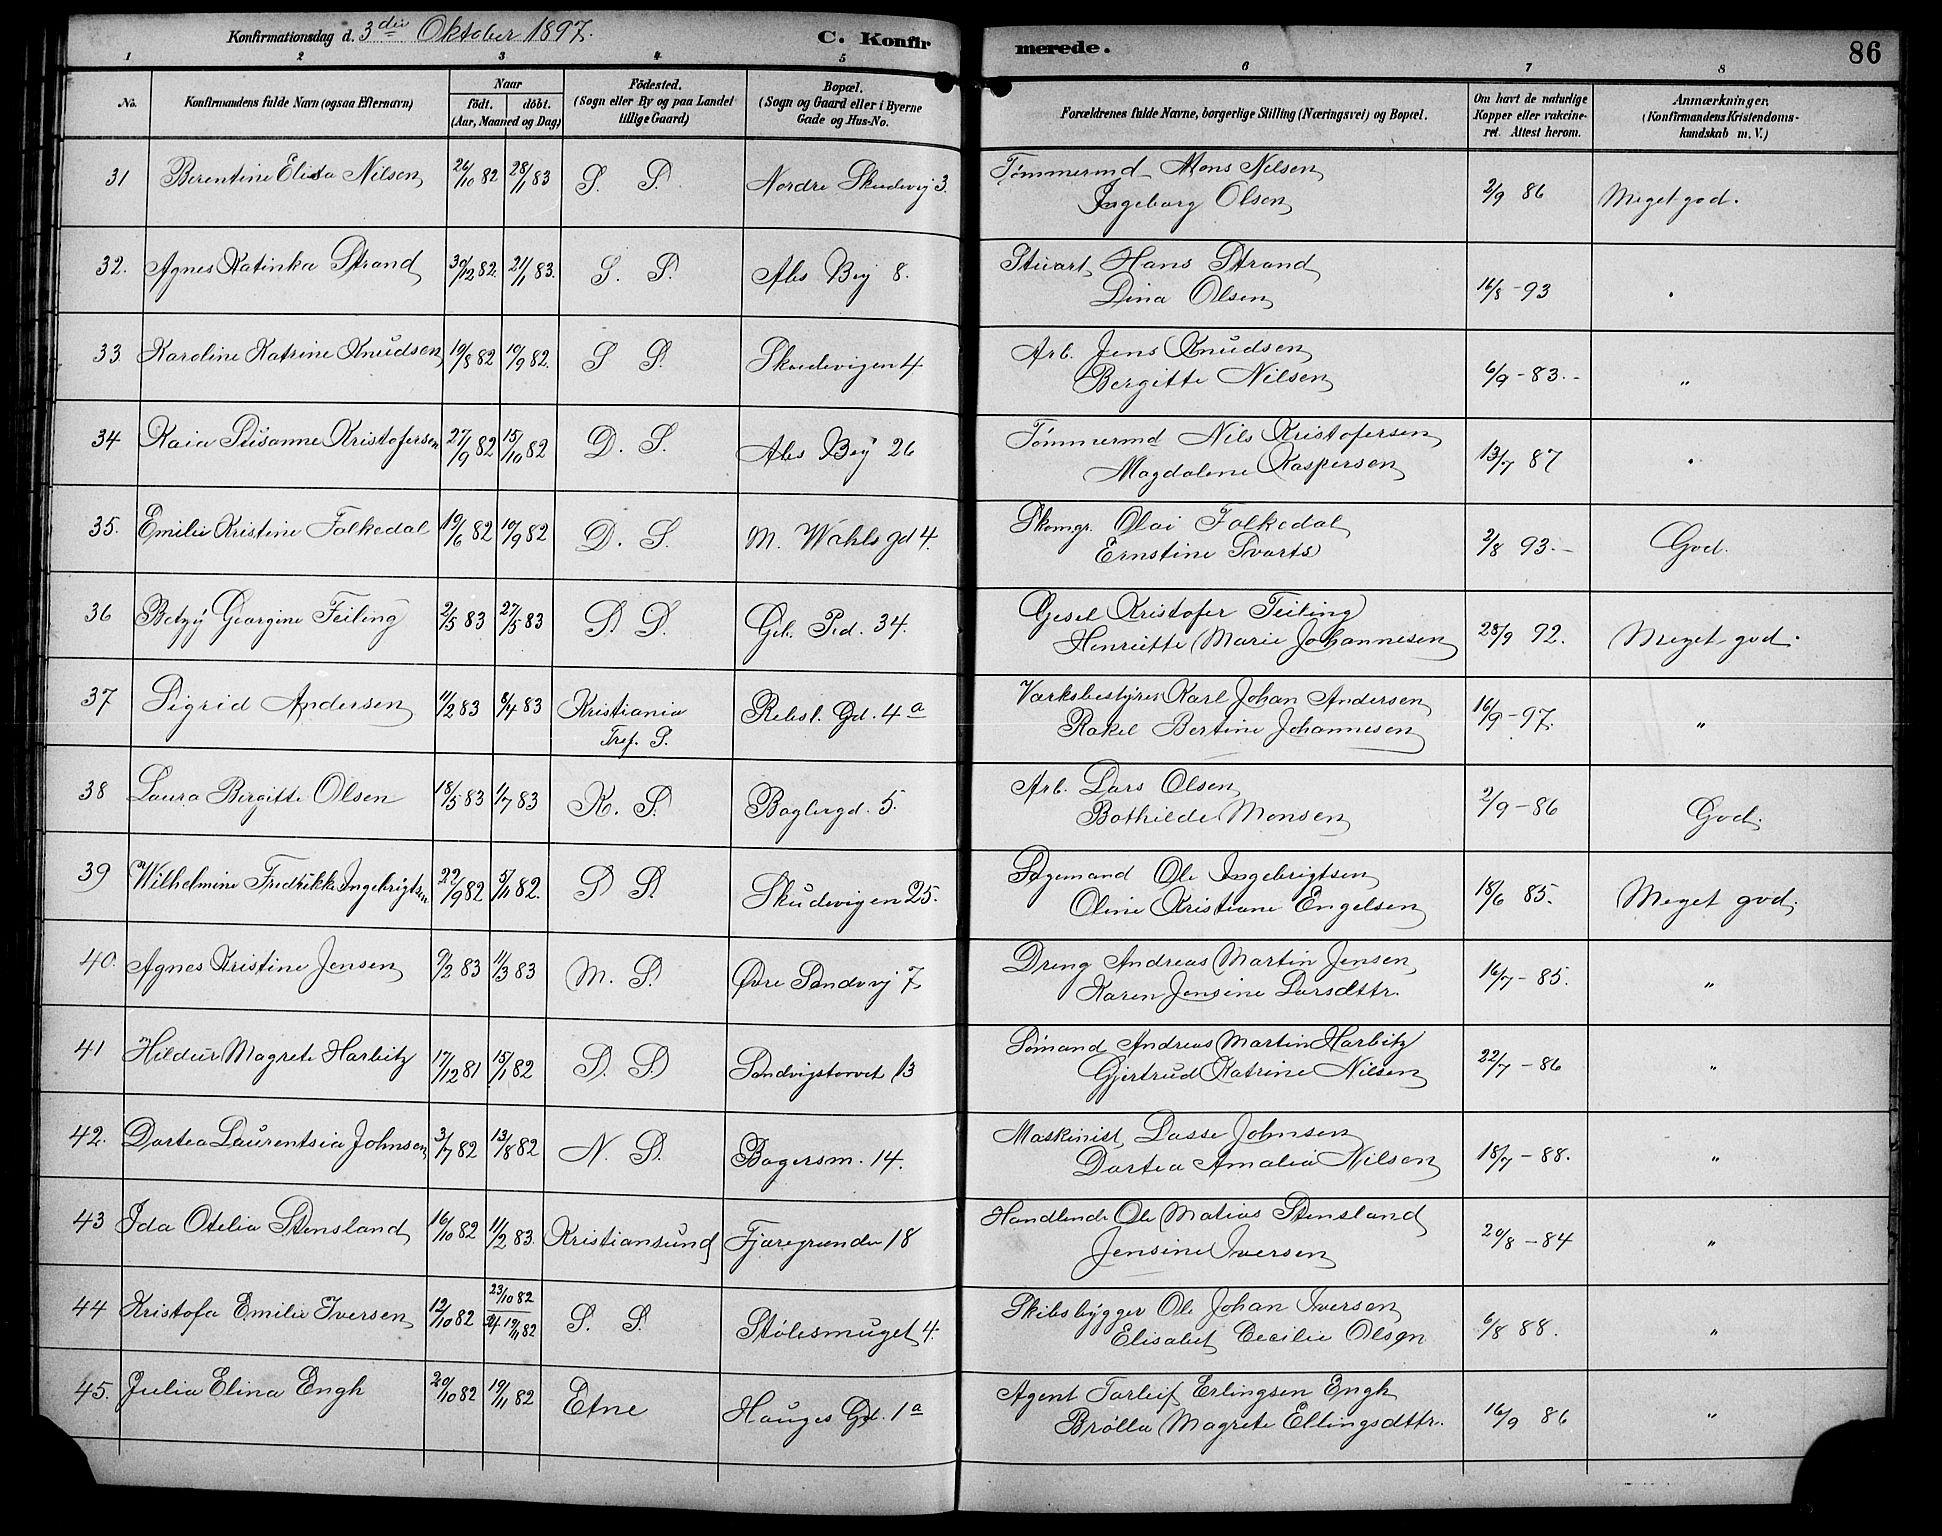 Konfirmationsdag d. 3die Oktober 1897. C. Konfirmerede. 86
1 2 3 4 5 6 7 8
No. Konfirmandens fulde Navn (ogsaa Efternavn) Naar født. døbt. (Aar, Maaned og Dag) Födested. (Sogn eller By og paa Landet tillige Gaard) Bopæl. (Sogn og Gaard eller i Byerne Gade og Hus-No. Forældrenes fulde Navne, borgerlige Stilling (Næringsvei) og Bopæl. Om havt de naturlige Kopper eller vakcineret. Attest herom. Anmærkninger. (Konfirmandens Kristendomskundskab m. V.)
31 Berentine Elisa Nilsen 26/10 82 28/1 83 S. S. Nordre Skudevig 3. Tømmermd Mons Nilsen 2/9 86 Meget god.
Ingeborg Olsen
32. Agnes Katinka Strand 30/12 82. 21/1 83. S. S. Abs Bey 8. Stuart Hans Strand 16/8 - 93 "
Dina Olsen
33 Karoline Katrine Knudsen 19/8 82 10/9 82. S S. Skudevigen 4 Arb. Jens Knudsen 6/9 - 83. "
Bergitte Nilsen
34 Kaia Susanne Kristofersen 27/9 82 15/10 82 D. S. Abs Bey 26 Tømmermd Nils Kristofersen 13/7 87 "
Magdalene Kaspersen
35. Emilie Kristine Folkedal 19/6 82 10/9 82 D. S. M. Wahls gd 4. Skomgr. Olai Folkedal 2/8 93. God.
Ernstine Svarts
36 Betzy Georgine Feiling 2/5 83 27/5 83 S. S. 34. Gesel Kristofer Feiling 28/9 92. Meget god.
Henriette Marie Johannesen
37 Sigrid Andersen 11/2 83 8/4 83 Kristiania Rebsl. Gd. 4a Værksbestyrer Karl Johan Andersen 16/9 - 97. "
Tref. S. Rakel Bertine Johannesen
38 Laura Bergitte Olsen 18/5 83 1/7 83 K. S. Baglergd. 5. Arb. Lars Olsen 2/9 - 86 God.
Bothilde Monsen
39 Wilhelmine Fredrikke Ingebrigtsen 22/9 82 5/11 82. S S. Skudevigen 25. Sagemand Ole Ingebrigtsen 18/6 85. Meget god.
Oline Kristiane Engelsen
40. Agnes Kristine Jensen 9/2 83 11/3 83 M. S. Øvre Sandvig 7 Dreng Andreas Martin Jensen 16/7 - 85. "
Karen Jensine Larsdttr.
41 Hildur Magrete Harbitz 17/12 81 15/1 82 S. S. Sandvigstorvet 13 Sømand Andreas Martin Harbitz 22/7 - 86 "
Gjertrud Katrine Nilsen
42. Dortea Laurentsia Johnsen 3/7 82 13/8 82 N. S. Bagersm. 14. Maskinist Lasse Johnsen 18/7 - 88. "
Dortea Amalia Nilsen
43 Ida Otelia Stensland 16/10 82 11/2 83. Kristiansund Fjæregrænden 18 Handlende Ole Matias Stensland 20/8 - 84 "
Jensine Iversen
44 Kristofa Emilie Iversen 12/10 82 23/10 82 S. S. Stølesmuget 4. Skibsbygger Ole Johan Iversen 6/8 88. "
19/11 82 Elisabet Cecilie Olsen
45. Julia Elina Engh 20/10 82 19/11 82 Etne Hauges Gd. 1a Agent Tarleif Erlingsen Engh 16/9 86 "
Brølla Magrete Ellingsdttr.